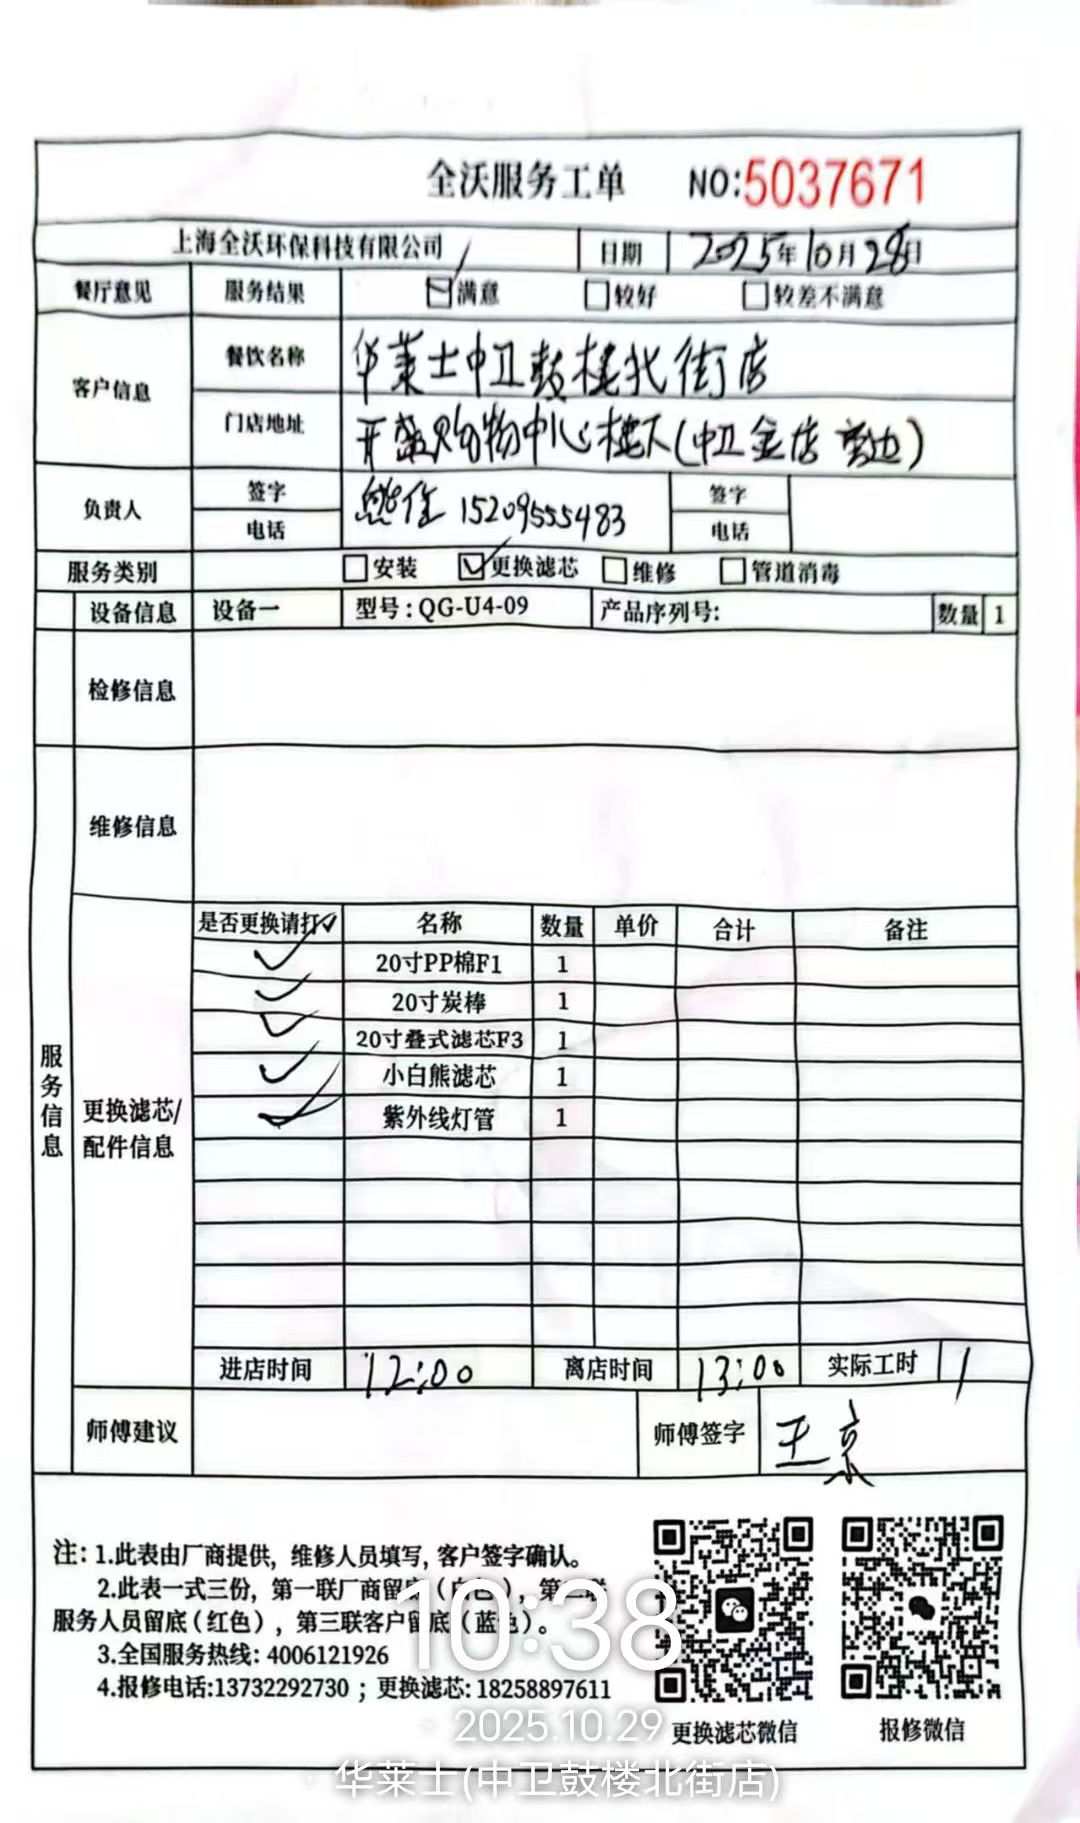 全沃服务工单 NO:5037671
上海全沃环保科技有限公司 日期 2025年10月28日
餐厅意见 服务结果 满意 较好 较差不满意
客户信息 餐饮名称 华莱士中卫鼓楼北街店
门店地址 开盛购物中心楼下(中卫金店旁边)
负责人 签字 佳 签字
电话 15209555483 电话
服务类别 安装 更换滤芯 维修 管道消毒
设备信息 设备一 型号:QG-U4-09 产品序列号: 数量 1
检修信息
维修信息
服务信息
更换滤芯/
配件信息
是否更换请打✓ 名称 数量 单价 合计 备注
✓ 20寸PP棉F1 1
✓ 20寸炭棒 1
✓ 20寸叠式滤芯F3 1
✓ 小白熊滤芯 1
✓ 紫外线灯管 1
进店时间 12:00 离店时间 13:00 实际工时 1
师傅建议 师傅签字 王京
注: 1.此表由厂商提供, 维修人员填写, 客户签字确认。
2.此表一式三份, 第一联厂商留底(白色), 第二联
服务人员留底(红色), 第三联客户留底(蓝色)。
3.全国服务热线: 4006121926
4.报修电话:13732292730 ; 更换滤芯: 18258897611
更换滤芯微信 报修微信
10:38
2025.10.29
华莱士(中卫鼓楼北街店)